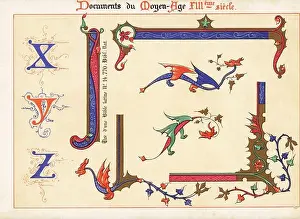 Documents du Moyen-Age XIIIème siècle.
X
Y
Z
Tiré d'une Bible latine Nº 16.770. Bibl. Nat.